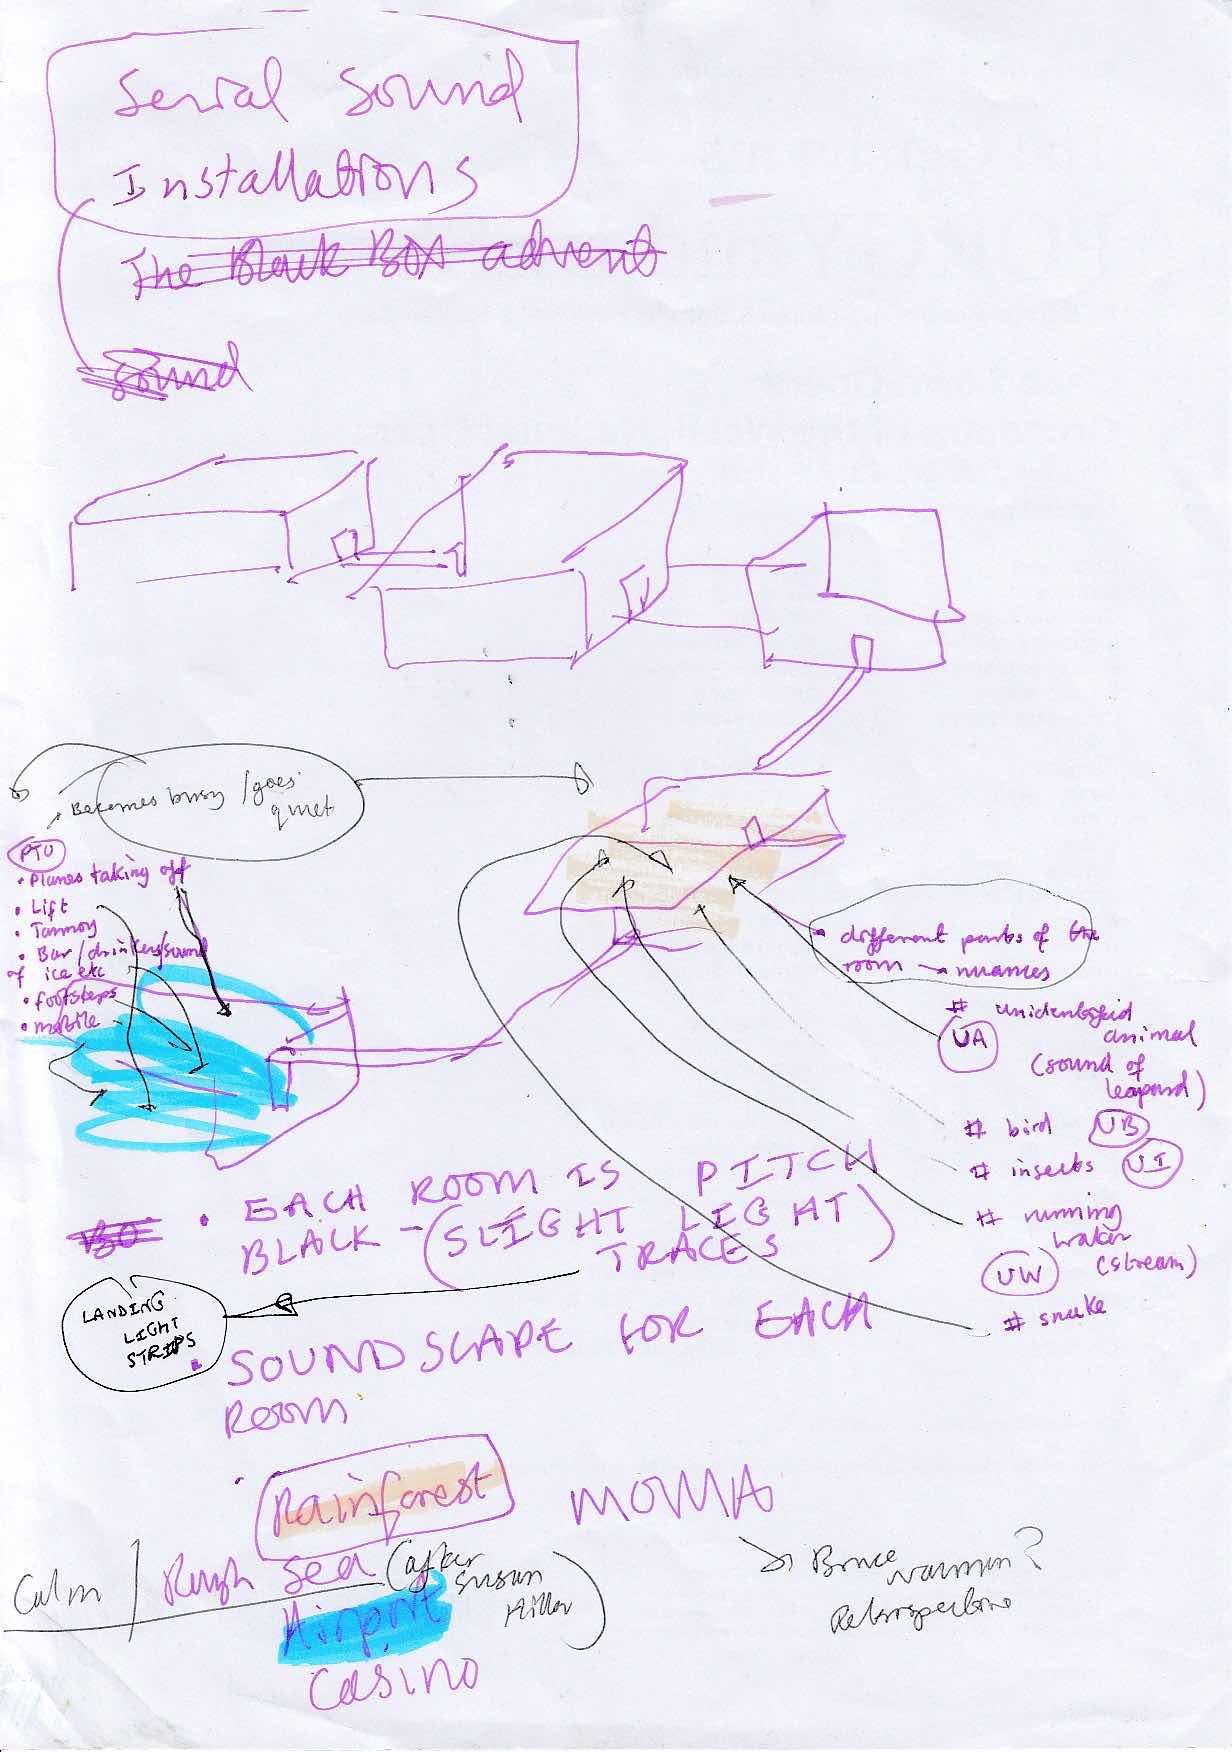 Serial Sound
Installations
The Black Box advent
Sound
Becomes busy / goes
quiet
PTO
• Planes taking off
• Lift
• Tannoy
• Bar/drinkers/sound
of ice etc
• footsteps
• mobile
• different parts of the
room → nuances
# unidentified
animal
UA
(sound of
leapard)
# bird UB
# insects UI
# running
water
(stream)
UW
# snake
• EACH ROOM IS PITCH
BLACK – (SLIGHT LIGHT
TRACES)
BO
LANDING
LIGHT
STRIPS
• SOUNDSCAPE FOR EACH
ROOM
• Rainforest
MOMA
Calm / Rough Sea (after
Susan
Hiller)
Airport
Casino
Bruce
Nauman?
Retrospective